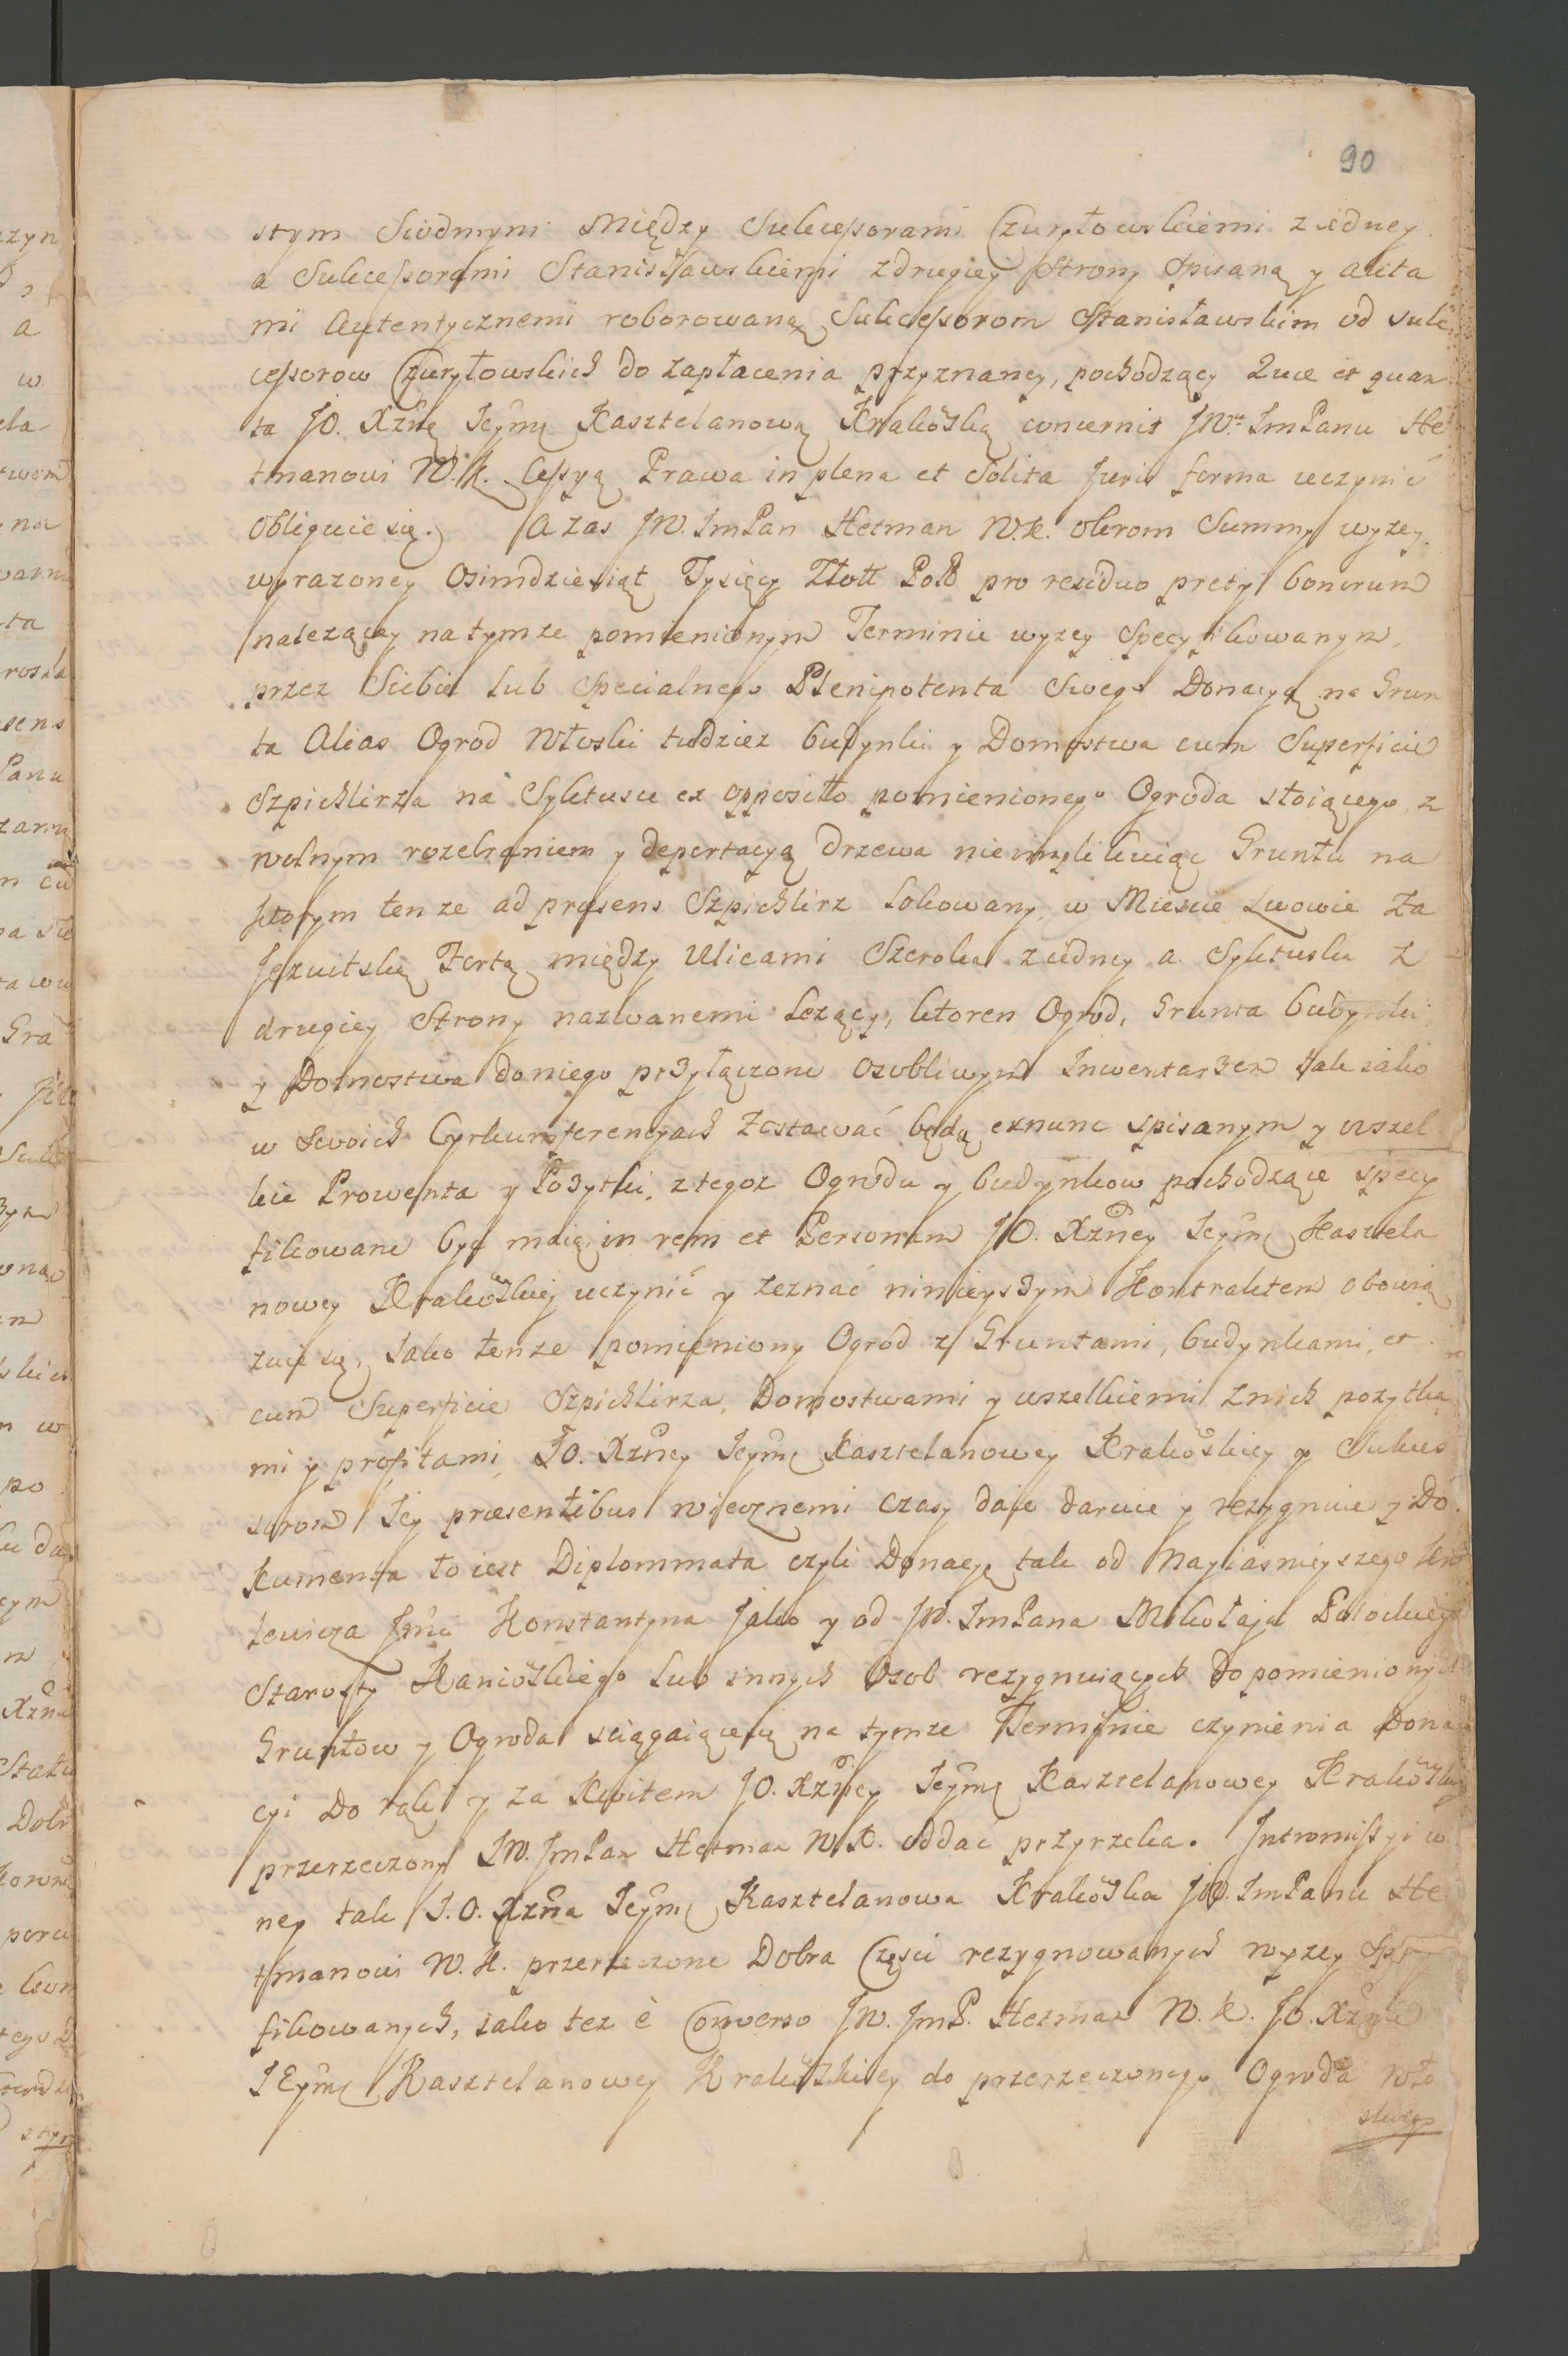 90
stym Siodmym między Sukcessorami Czuryłowskiemi z iedney
a Sukcessorami Stanisławskiemi z drugiey Strony Spisaną y akta
mi Autentycznemi roborowaną Sukcessorom Stanisławskim od Suk
cessorow Czuryłowskich do zapłacenia przyznaney, pochodzący Quae et quan
ta JO. Xżnę Jeymę Kasztelanową Krakowską concernit JWu ImPanu He
tmanowi W. K. Cessyą Prawa in plena et Solita Juris forma uczynić
obliguie się. A zas JW. ImPan Hetman W.K. obrom Summy wyzey
wyrazoney Osimdziesiąt Tysięcy Złott Pols pro residuo pretij bonorum
nalezącey na tymze pomienionym Terminie wyzey Specyfikowanym,
przez Siebie lub Specialnego Plenipotenta Swego Donacyą na Grun
ta Alias Ogrod Włoski tudziez budynki y Domostwa cum Superficie
Szpichlirza na Syktusce ex opposito pomienionego Ogroda stoiącego z
wolnym rozebraniem y deportacyą drzewa nieimplikuiąc Gruntu na
ktorym tenze ad praesens Szpichlirz lokowany, w Miescie Lwowie Za
Jezuitską Fortą między Ulicami Szeroka z iedney a Syktuska z
drugiey Strony nazwanemi lezący, ktoren Ogrod, Grunta budynki
y Domostwa do niego przyłączone osobliwym Inwentarzem tak iako
w Swoich Cyrkumferencyach Zostawać będą exnunc spisanym y wszel
kie Prowenta y Pozytki, z tegoz Ogrodu y budynkow pochodzące specy
fikowane być maią in rem et Personam JO. Xżney Jeymę Kasztela
nowey Krakowskiey uczynić y zeznać ninieyszym Kontraktem obowią
zuie się, Jako tenze pomieniony Ogrod z Gruntami, budynkami, et
cum Superficie Szpichlirza, Domostwami y wszelkiemi z nich pozytka
mi y profitami, JO. Xżney Jeymę Kasztelanowey Krakowskiey y Sukces
sorom Jey praesentibus wiecznemi czasy daie daruie y rezygnuie y Do
kumenta to iest Diplommata czyli Donacyę tak od Nayiasnieyszego Kró
lewicza Jmci Konstantyna Jako y od JW. ImPana Mikołaja Potockiego
Starosty Kaniowskiego lub innych Osob rezygnuiących do pomienionych
Gruntow y Ogroda sciągaiące się na tymze Terminie czynienia Dona
cyi do rąk y za Kwitem JO. Xżney Jeymę Kasztelanowey Krakowskiey
przerzeczony JW. ImPan Hetman W.K. oddać przyrzeka. Intromissyi w
ney tak J.O. Xżna Jeymę Kasztelanowa Krakowska JW. ImPanu He
tmanowi W. K. przerzeczone Dobra Części rezygnowanych wyzey Spe
fikowanych, iako tez è Converso JW. JmP. Hetman W. K. JO. Xżnie
JEymę Kasztelanowey Krakowskiey do przerzeczonego Ogroda Wło
skiego